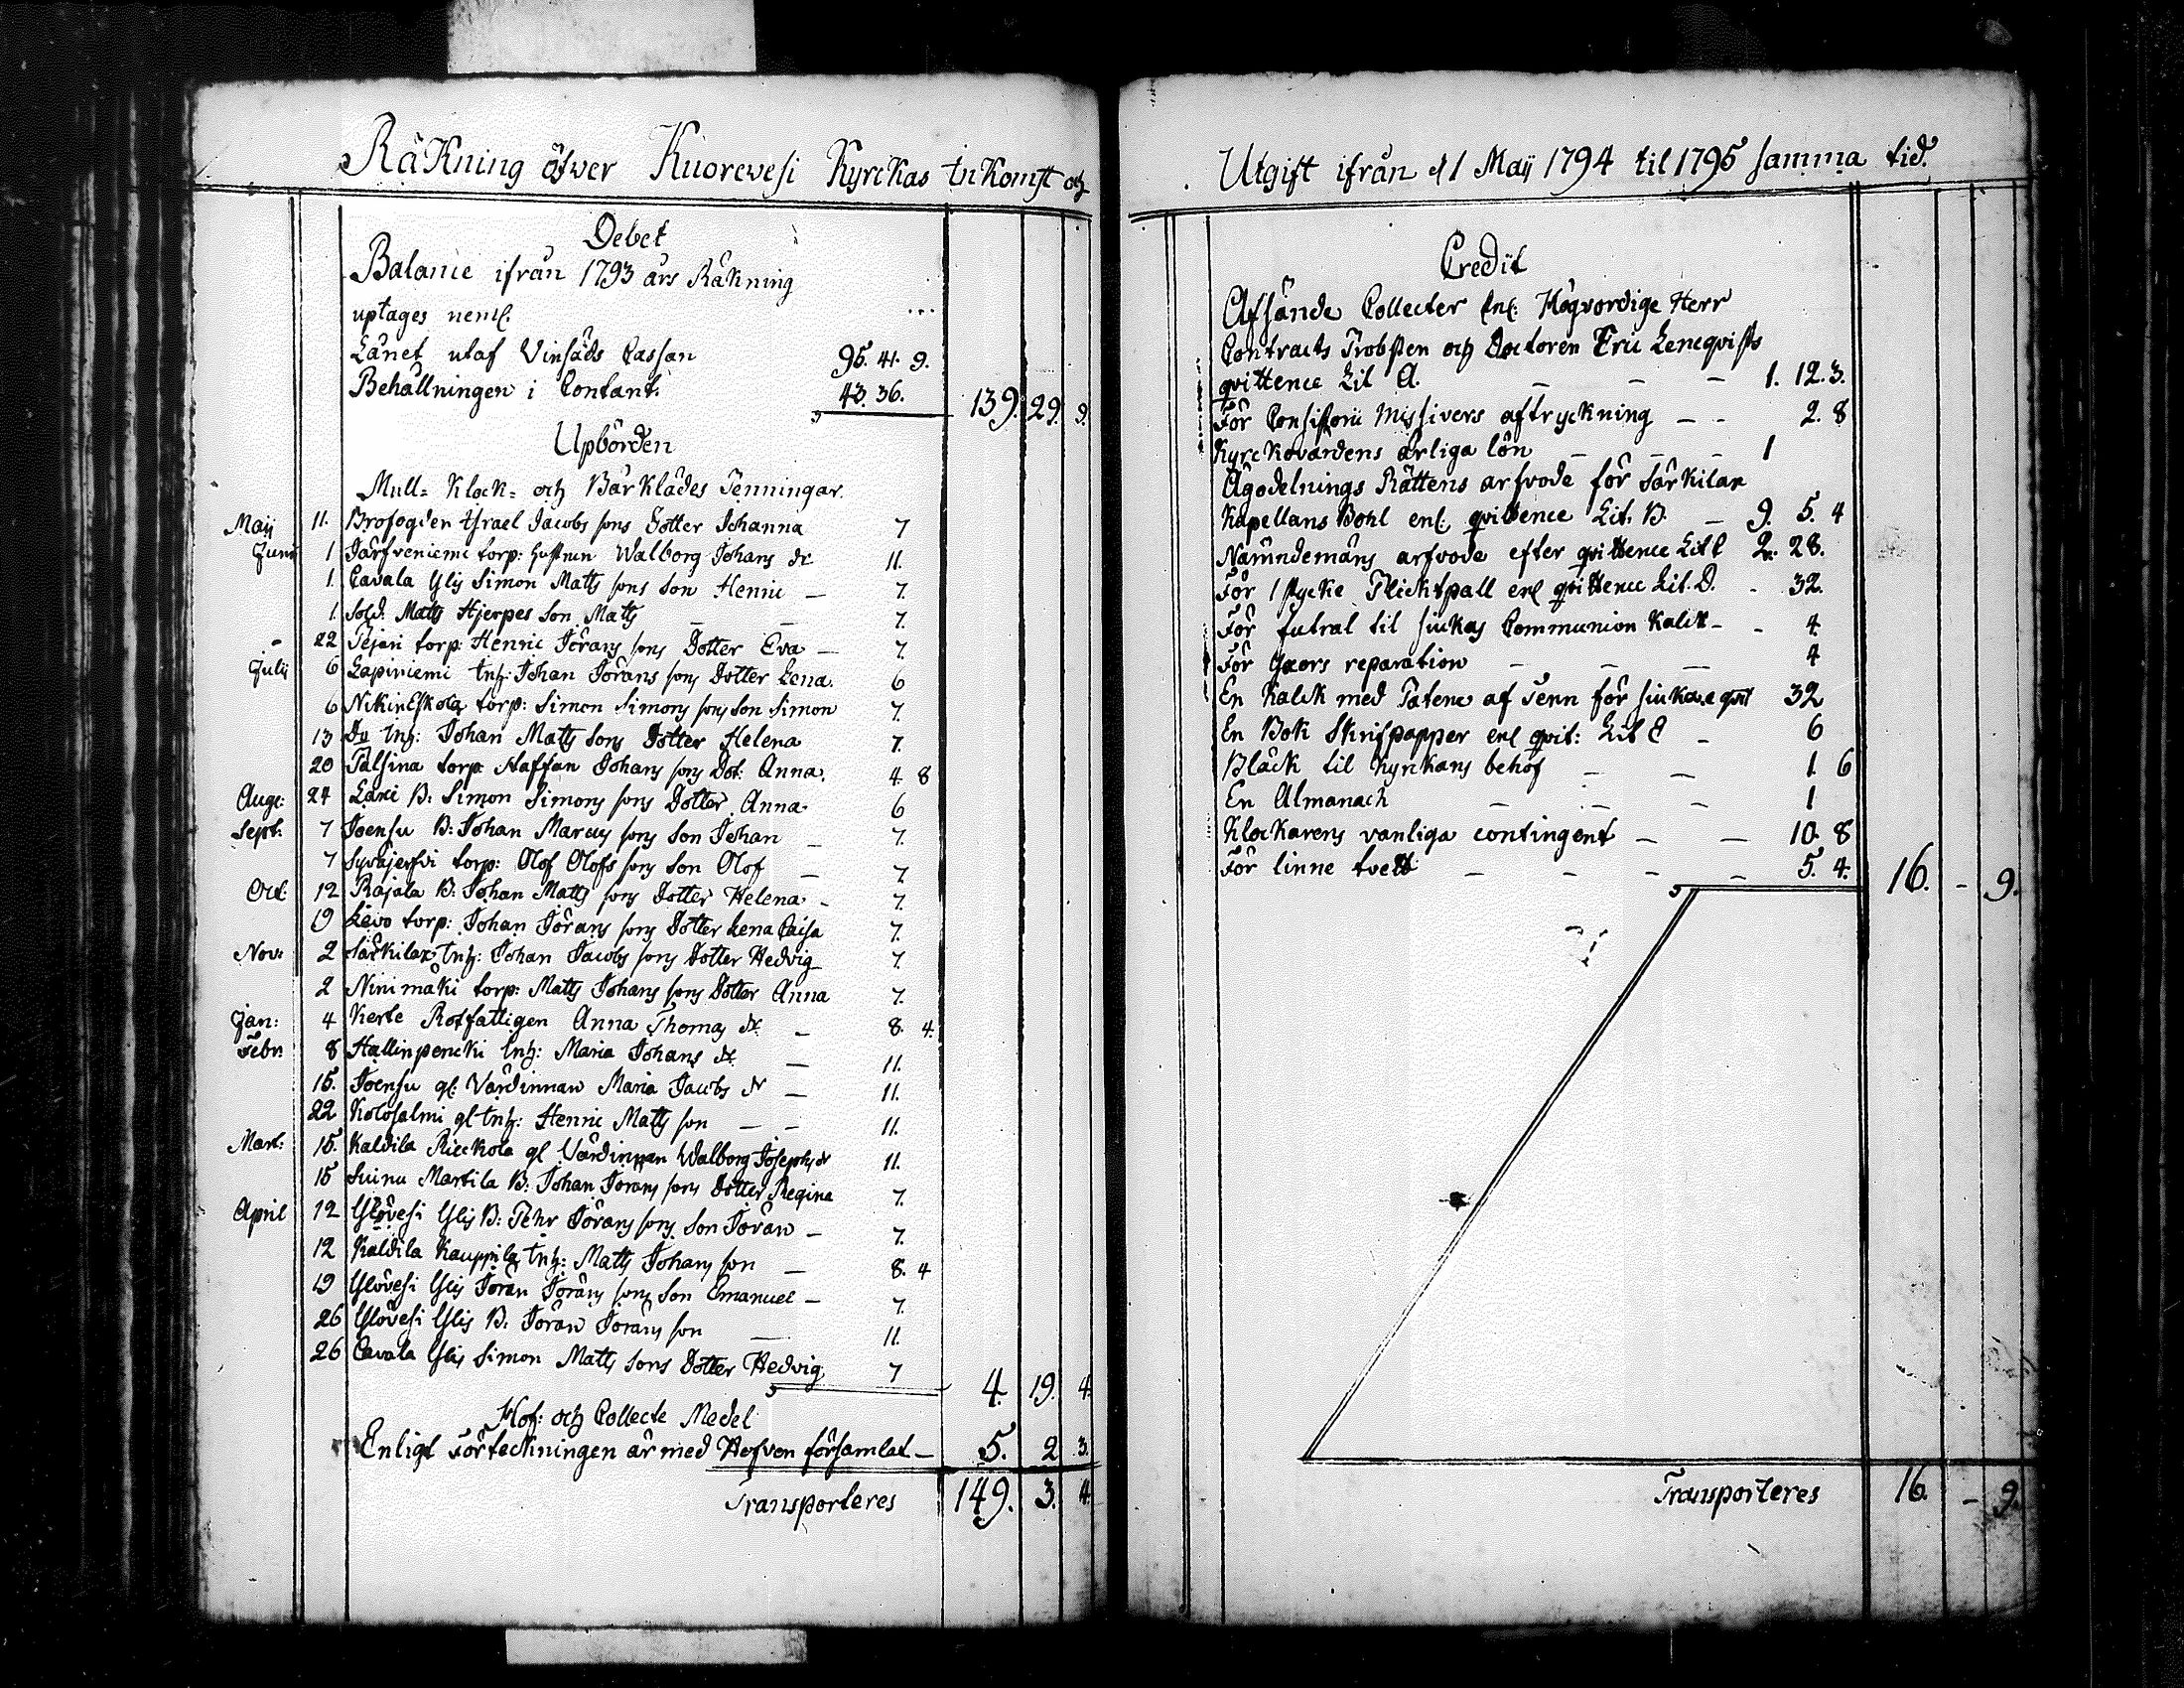 Räkning öfwer Kuorewesi Kyrckas Inkomst och
Debet
Balance ifrån 1793 års Räkning
uptages neml. ...
Lånet utaf Vinsäds Cassan 95. 41. 9.
Behållningen i Contant. 43. 36. 139. 29. 9.
Upbörden
Mull= Klock= och Bårklädes Penningar.
Maij 11. Brofogden Israel Jacobs sons Dotter Johanna 7
Junii 1 Järfveniemi torp: hustrun Walborg Johans dr 11.
1. Cavala Ylis Simon Matts sons Son Henric — 7.
1. Sold. Matts Hjerpes Son Matts — — 7.
- 22 Pejari torp: Henric Jörans sons Dotter Eva — 7.
Julii 6 Lapiniemi Inh: Johan Jörans sons Dotter Lena. 6
6 NikinEskola torp: Simon Simons sons Son Simon 7.
13 Do Inh: Johan Matts Sons Dotter Helena 7.
20 Palsina torp Staffan Johans sons Dot: Anna. 4. 8
Aug: 24 Lari B: Simon Simons sons Dotter Anna. 6
Sept: 7 Joensu B: Johan Marcus sons Son Johan — 7.
7 Syväjerfvi torp: Olof Olofs sons Son Olof — 7.
Oct: 12 Rajala B: Johan Matts sons Dotter Helena - 7.
19 Levo torp: Johan Jörans sons Dotter Lena Caisa 7.
Nov: 2 Särkilax Inh: Johan Jacobs sons Dotter Hedvig 7.
2 Ninimäki torp: Matts Johans sons Dotter Anna 7.
Jan: 4 Kerte Rotfattigen Anna Thomas dr — 8. 4.
Febr: 8 Hallinpencki Inh: Maria Johans dr — 11.
15. Joensu gl: Värdinnan Maria Jacobs dr — 11.
22 Kolosalmi gl Inh: Henric Matts son — — 11.
Mart: 15. Kaldila Rieckola gl Värdinnan Walborg Josephs dr 11.
15 Suinu Martila B: Johan Jörans sons Dotter Regina 7.
April 12 Ylövesi Ylis B: Pehr Jörans sons Son Jöran — 7.
12 Kaldila Kauppila Inh: Matts Johans son — 8. 4
19 Ylövesi Ylis Jöran Jörans sons Son Emanuel — 7.
26 Ylövesi Ylis B. Jöran Jörans son — 11.
26 Cavala Ylis Simon Matts sons Dotter Hedvig 7
4. 19. 4.
Hof: och Collecte Medel
Enligt Förteckningen är med Hofven församlat — 5. 2 3.
Transporteres 149. 3. 4
Utgift ifrån d 1 Maij 1794 til 1795 samma tid.
Credit
Afsände Collecter enl: Högvordige Herr
Contracts Probsten och Doctoren Eric Lencqvists
qvittence Lit A. — — — 1. 12. 3.
För Consistorii Missivers aftryckning — - 2. 8
Kyrckovärdens årliga lön — — — 1
Ägodelnings Rättens arfvode för Särkilax
Kapellans Bohl enl: qvittence Lit. B. — 9. 5. 4
Nämndemäns arfvode efter qvittence Lit C 2. 28.
För 1 stycke Plicktpall enl qvittence Lit. D. - 32.
För futral til siukas Communion Kalck - - 4.
För reparation — — — 4
En Kalck med Patene af Tenn för siuka e qvit 32
En Bok Skrifpapper enl qvit: Lit E — 6
Bläck til kyrckans behof — — 1. 6
En Almanach — — — 1
Klockarens vanliga contingent — — 10. 8
För linne tvett — — — — 5. 4. 16. - 9.
Transporteres 16. - 9.